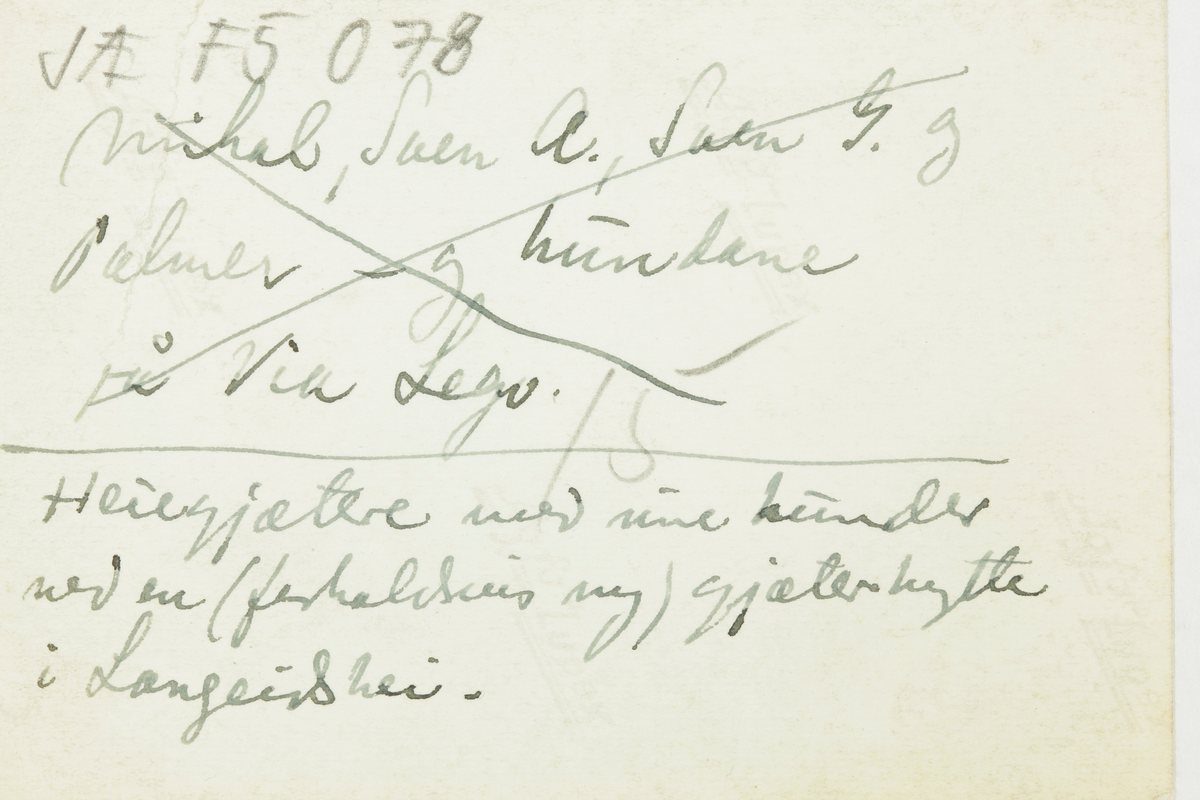 JA F5 078
Mikal, Sven A., Sven G. og
Palmer og hundane
på Via Lego.
15
Heiegjætere med sine hunder
ved en (forholdsvis ny) gjæterhytte
i Langeidshei.